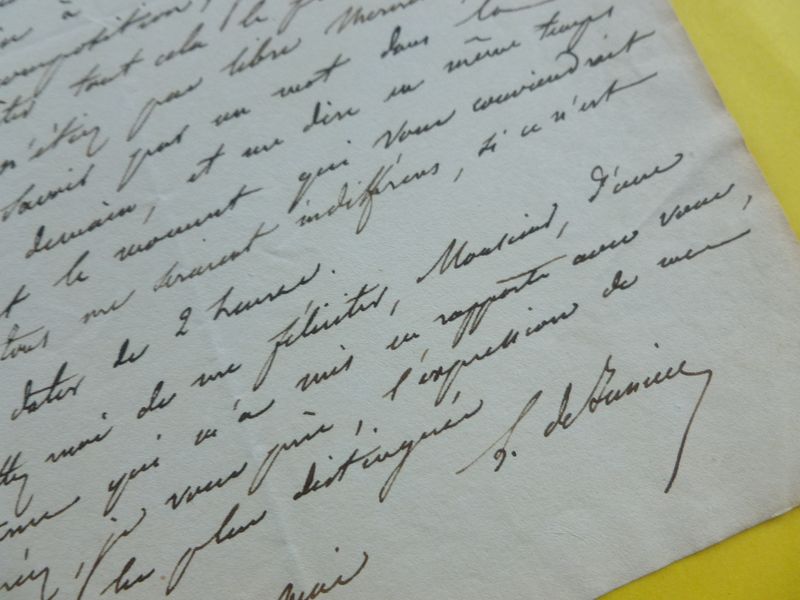 à
composition,
tout cela le
n'étiez pas libre
savoir par un mot dans la
demain, et me dire en même temps
le moment qui vous conviendrait
tous me seraient indifférens, si ce n'est
dater de 2 heures.
moi de me féliciter, Monsieur, d'une
qui m'a mis en rapports avec vous,
je vous prie, l'expression de mes
les plus distingués
de Jussieu